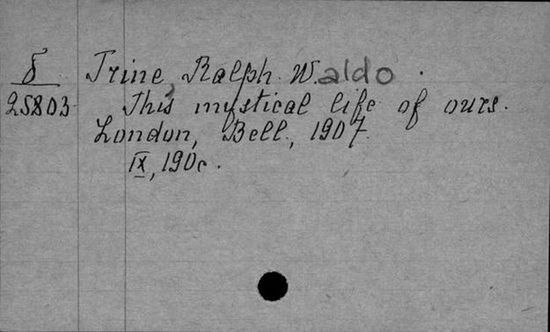 δ Trine, Ralph Waldo.
25803 This mystical life of ours.
London, Bell, 1907.
IX, 190c.